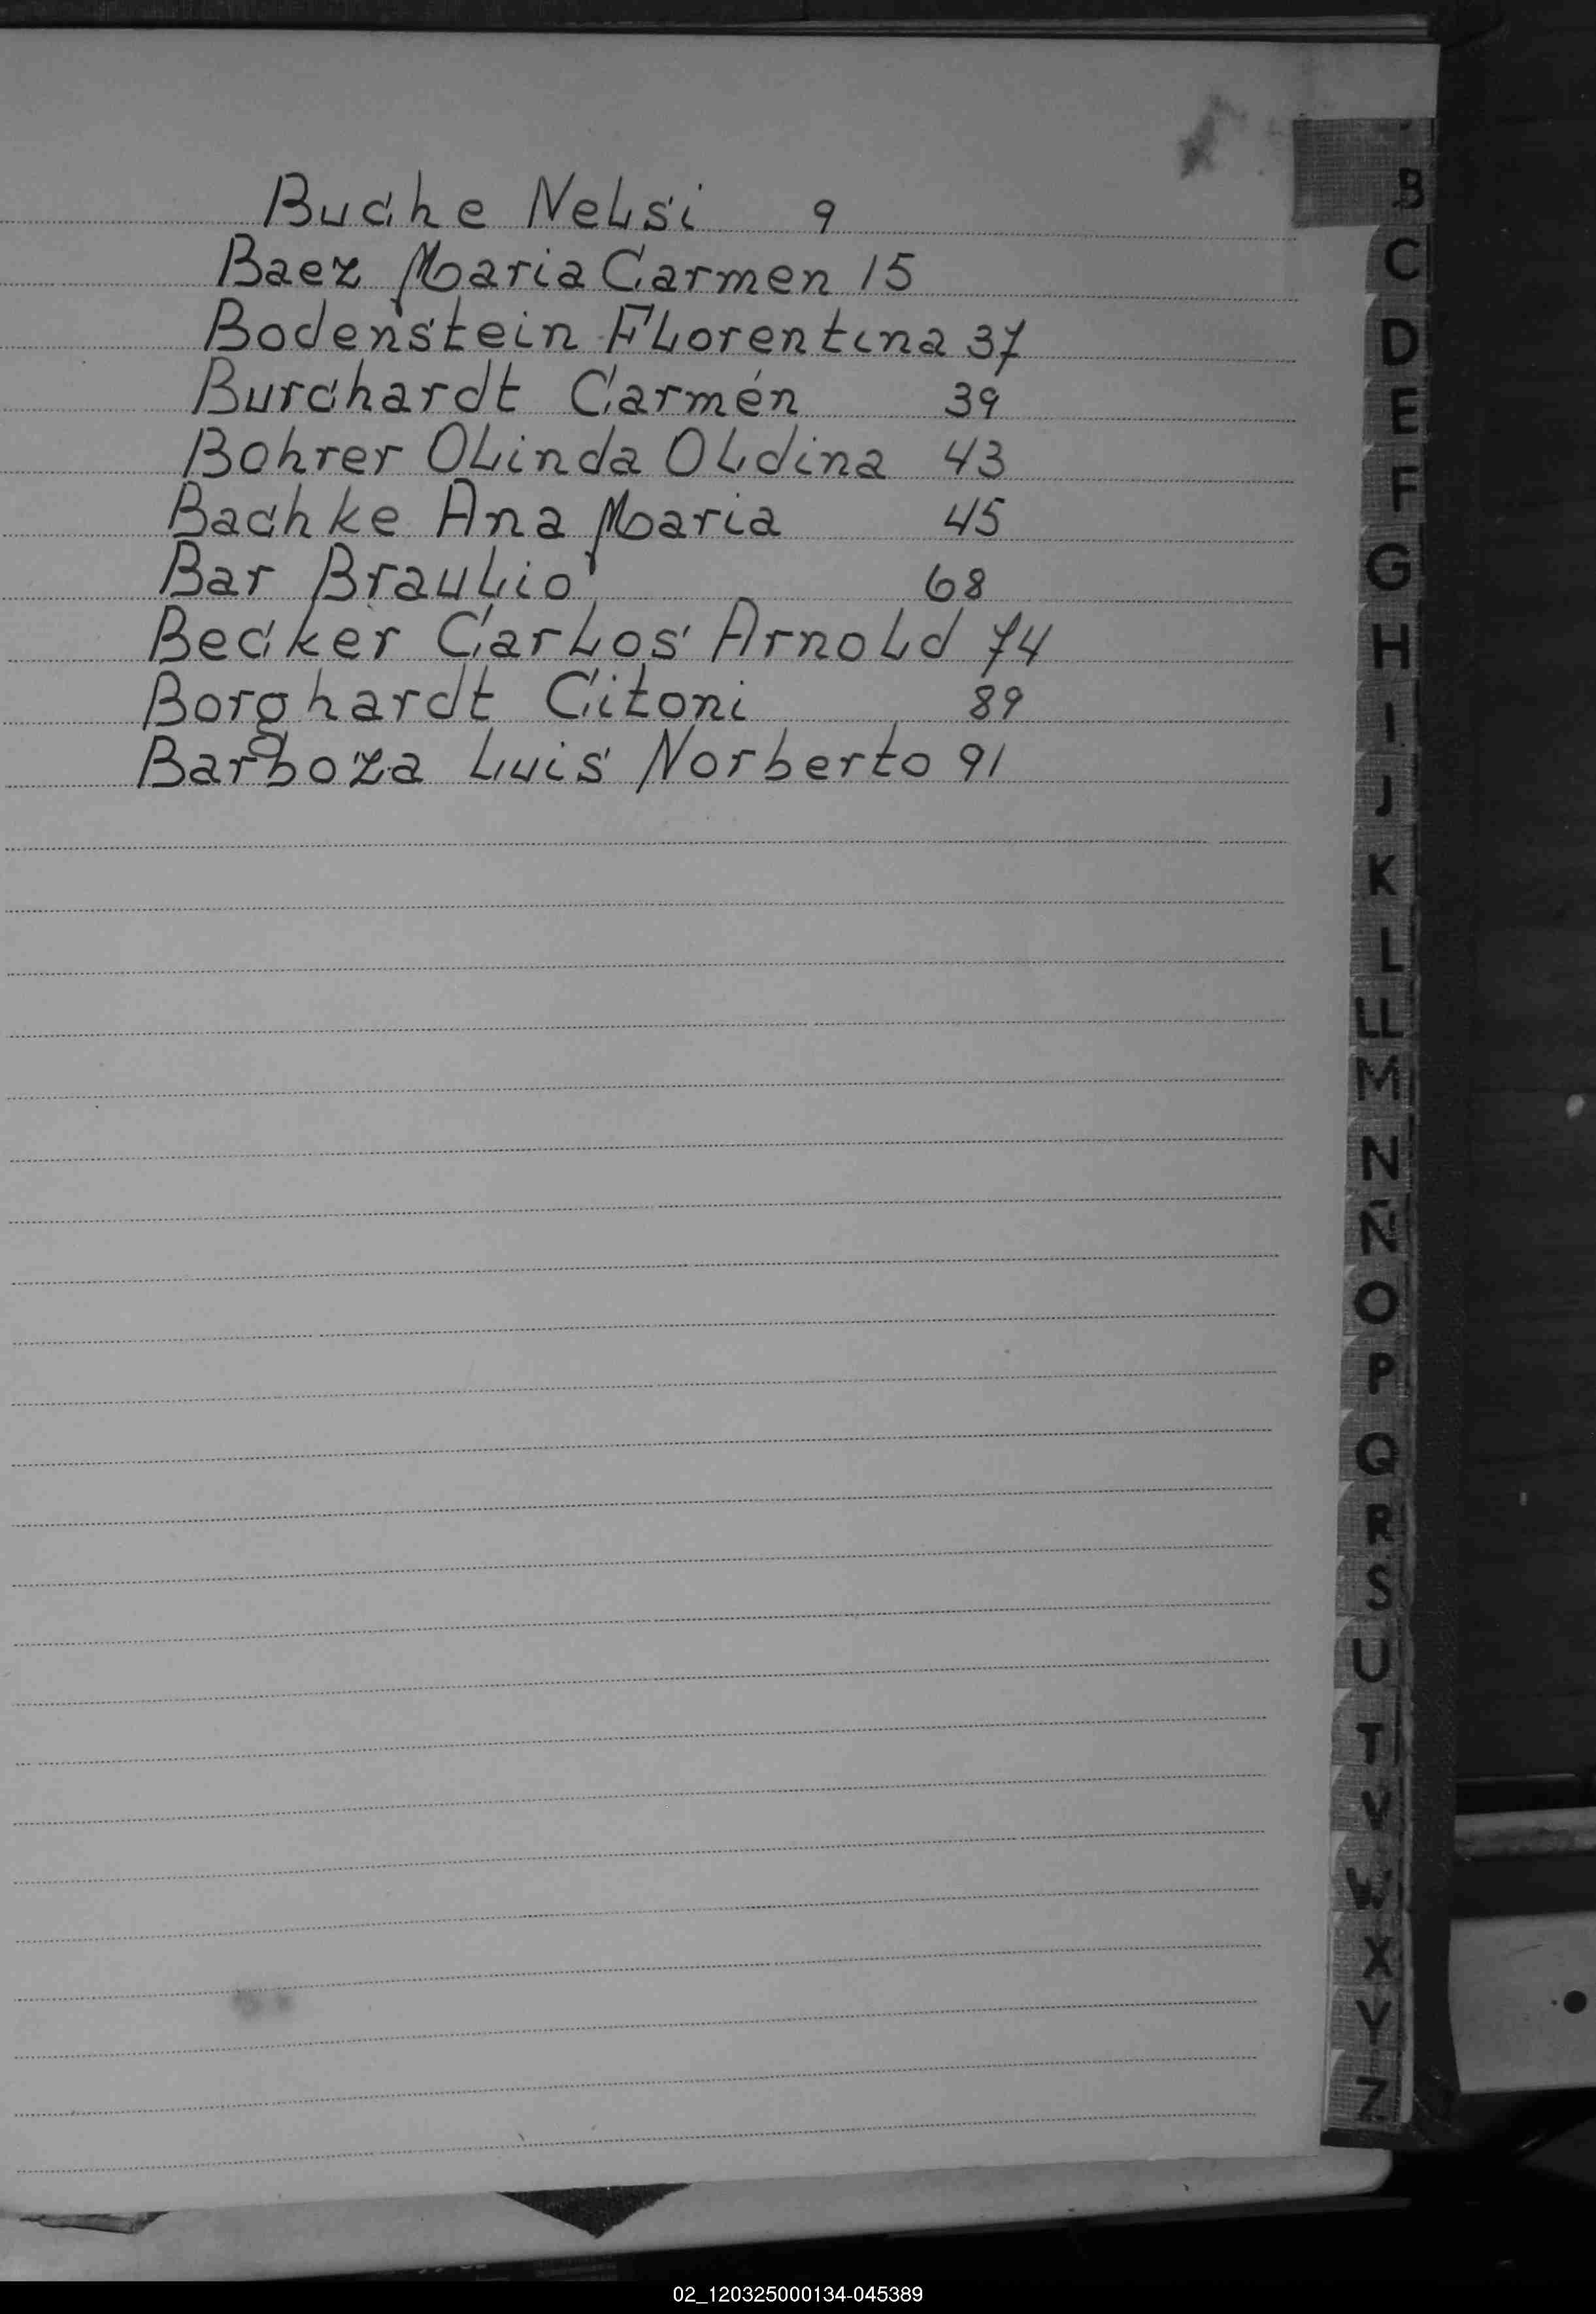 Buche Nelsi 9
Baez Maria Carmen 15
Bodenstein Florentina 37
Burchardt Carmén 39
Bohrer Olinda Oldina 43
Bachke Ana Maria 45
Bar Braulio 68
Becker Carlos Arnold 74
Borghardt Citoni 89
Barboza Luis Norberto 91
B
C
D
E
F
G
H
I
J
K
L
LL
M
N
Ñ
O
P
Q
R
S
U
T
V
W
X
Y
Z
02_120325000134-045389